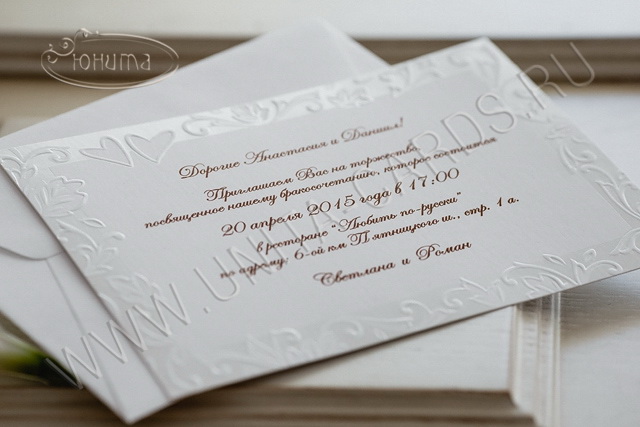 Юнита
Дорогие Анастасия и Даниил!
Приглашаем Вас на торжество,
посвященное нашему бракосочетанию, которое состоится
20 апреля 2015 года в 17:00
в ресторане "Любить по-русски"
по адресу: 6-ой км Пятницкого ш., стр. 1 а.
Светлана и Роман
WWW.UNITA-CARDS.RU